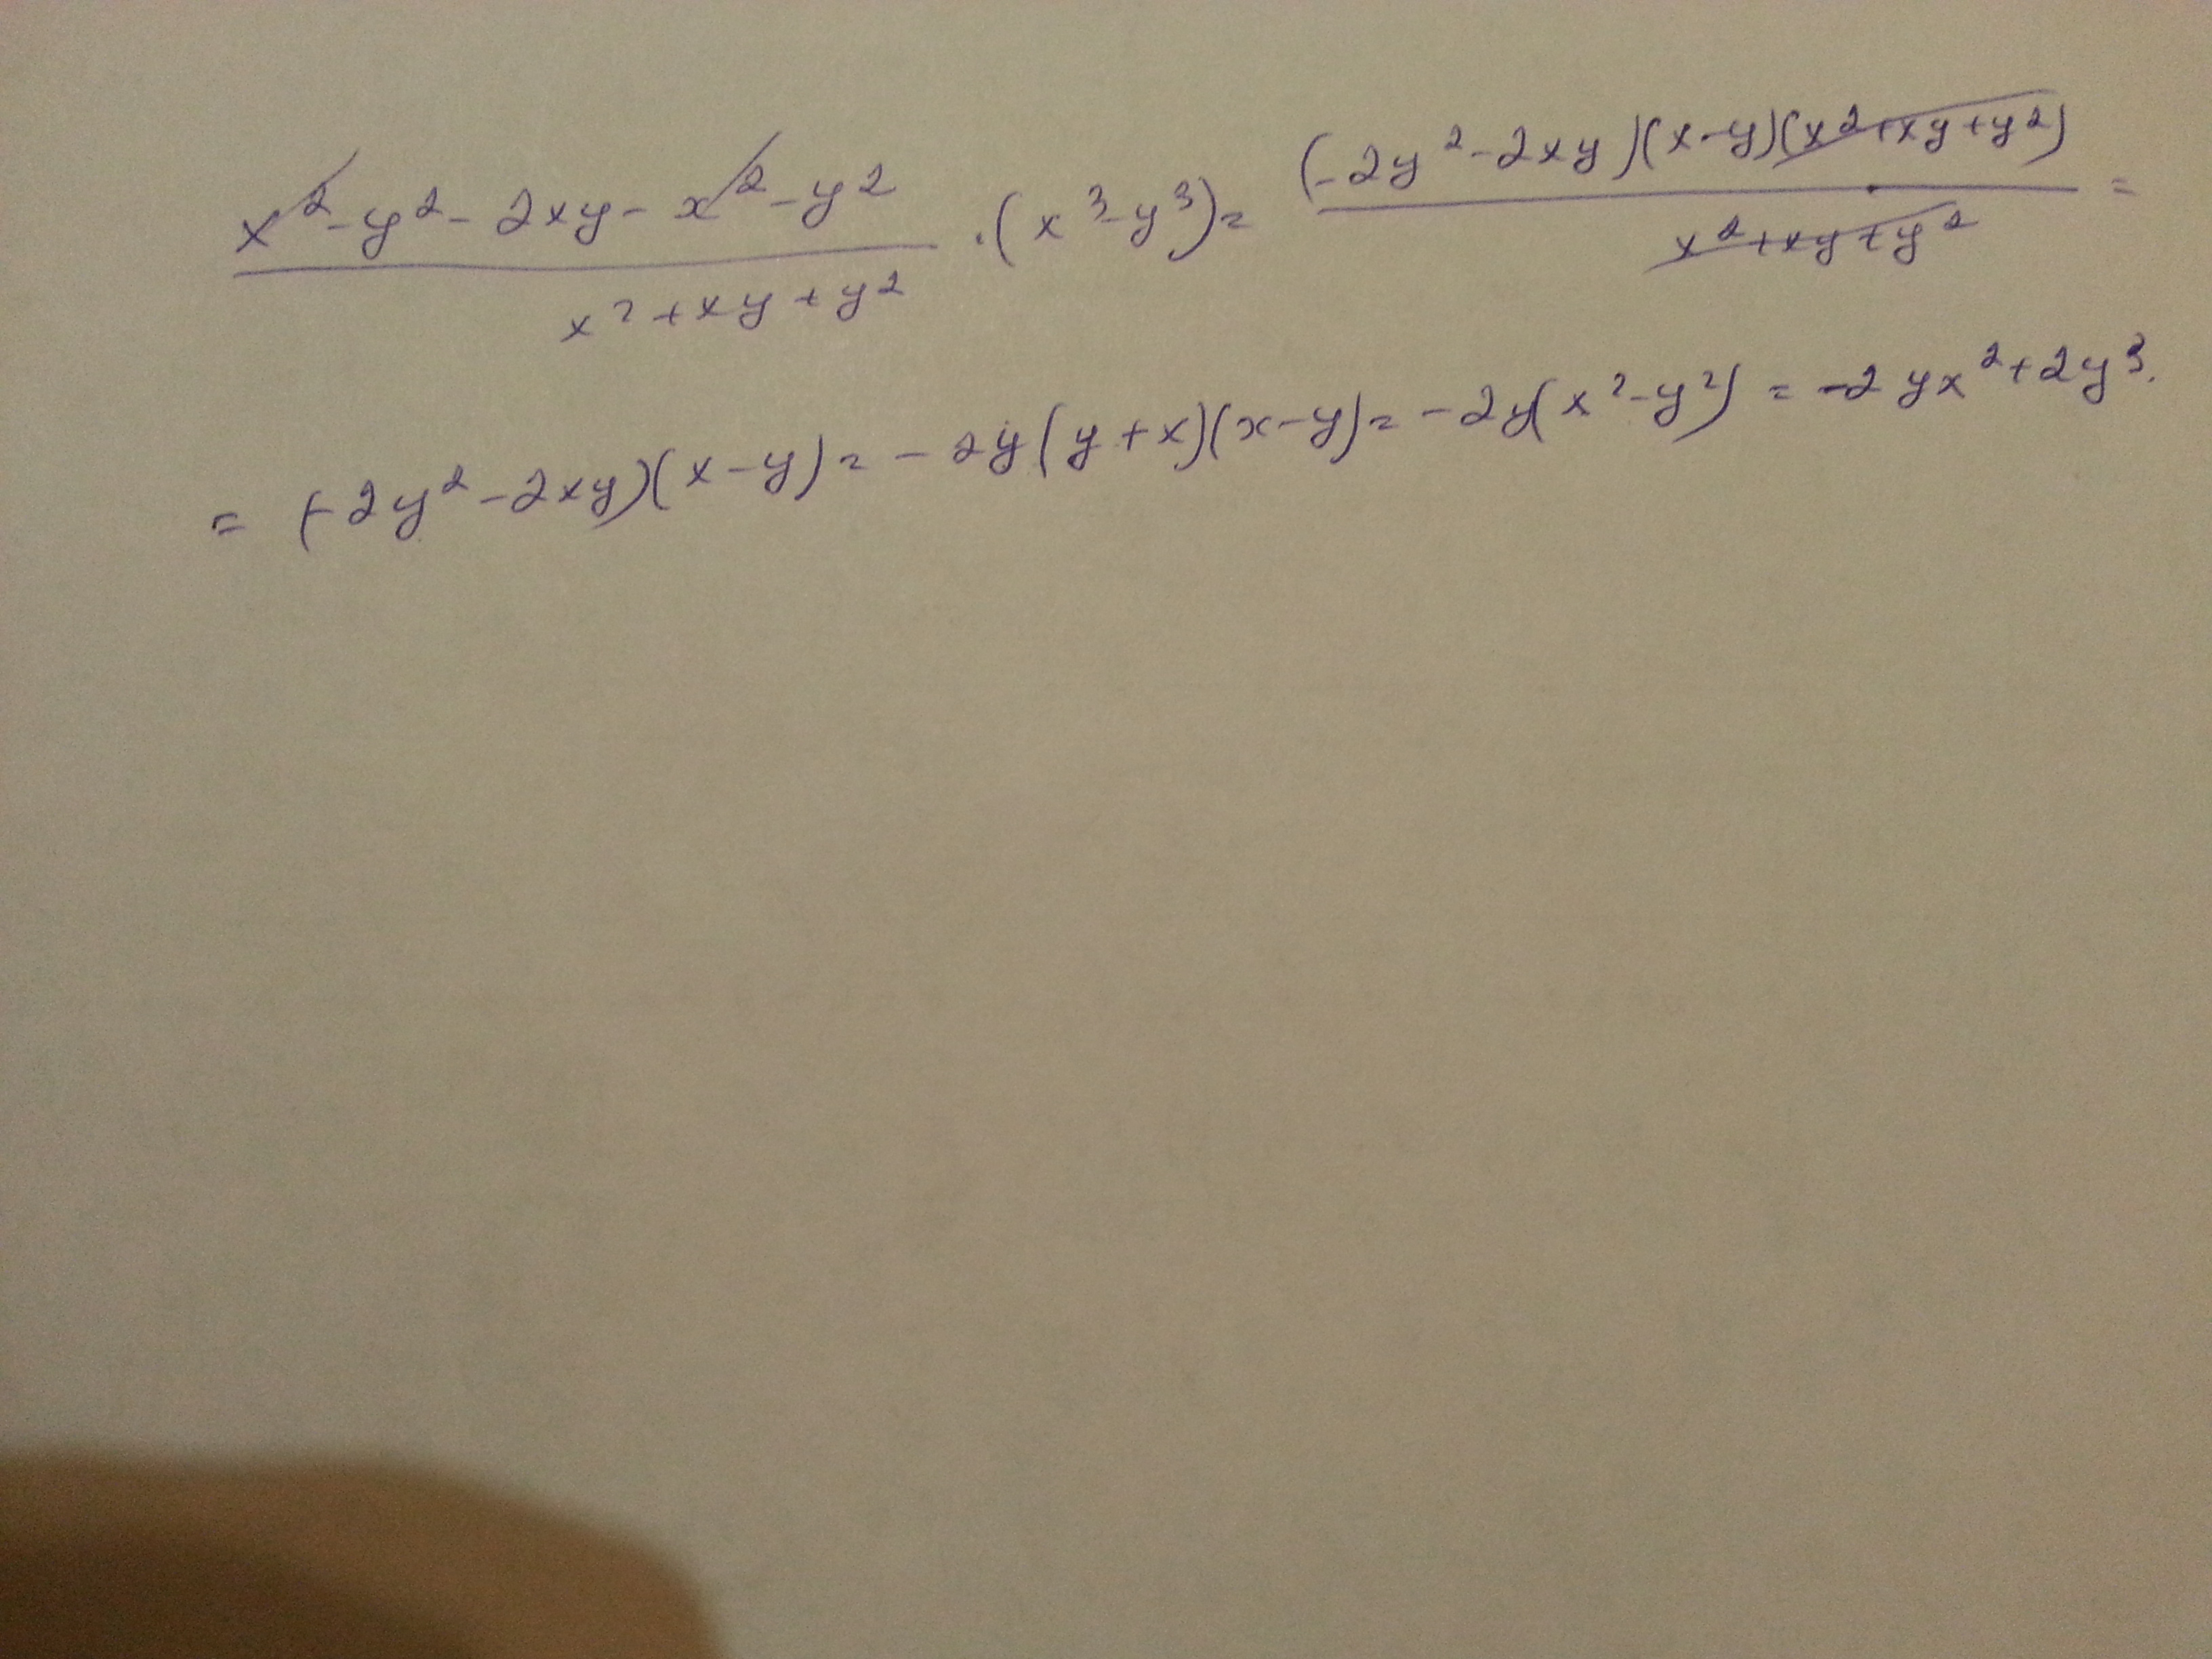 (x² - y² - 2xy - x² - y²)/(x² + xy + y²) · (x³ - y³) = ((-2y² - 2xy)(x - y)(x² + xy + y²))/(x² + xy + y²) =
= (-2y² - 2xy)(x - y) = -2y(y + x)(x - y) = -2y(x² - y²) = -2yx² + 2y³.